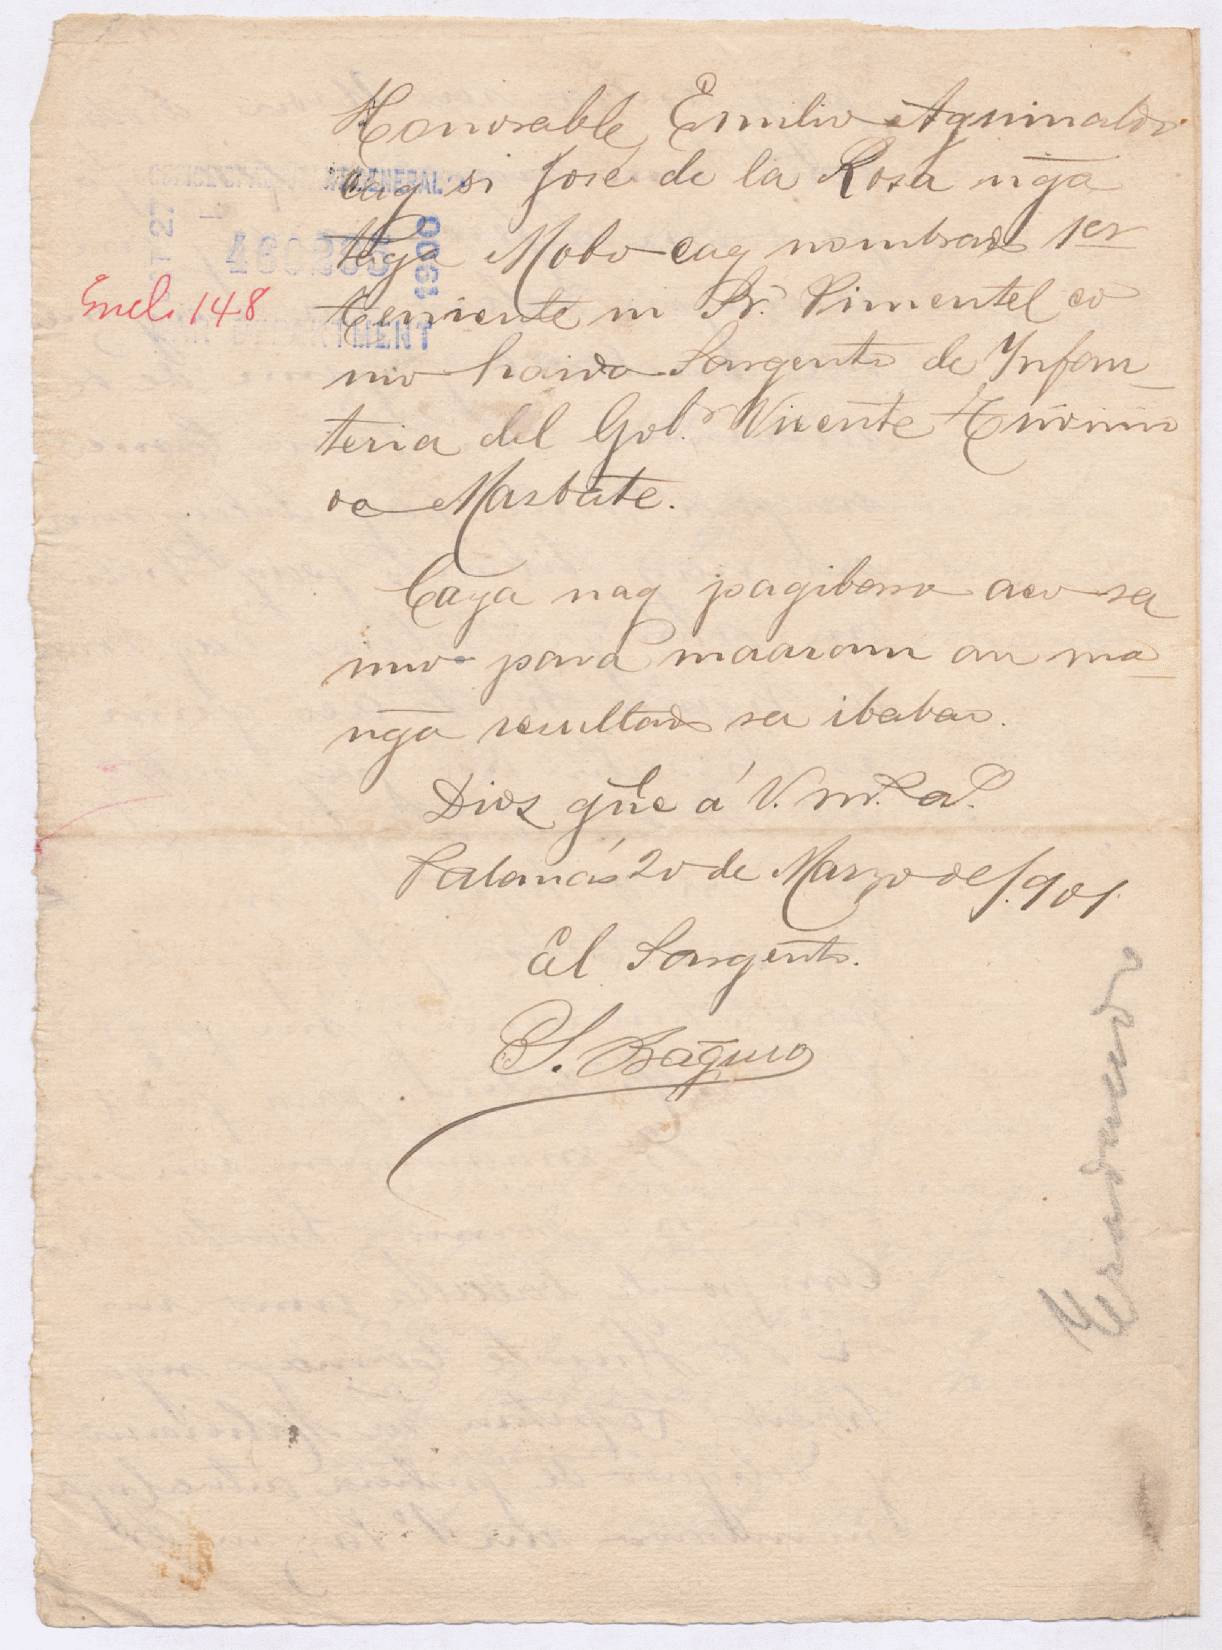 Honorable, Emilio Aguinaldo
cag si Jose de la Rosa nḡa
taga Mobo cag nombrado 1er
teniente ni Sr. Pimentel co
mo haivo Sargento de Ynfan_
teria del Gobr. Vicente
sa Masbate.
Caya nag pagibaro aco sa
imo para maaram an ma_
nḡa resultado sa ibabao.
Dios gũe á V. m.s a.s
Palanás 20 de Marzo de /.901.
El Sargento.
S. Bãguio
Encl. 148
GENERAL
OCT 27
1900
460205
DEPARTMENT